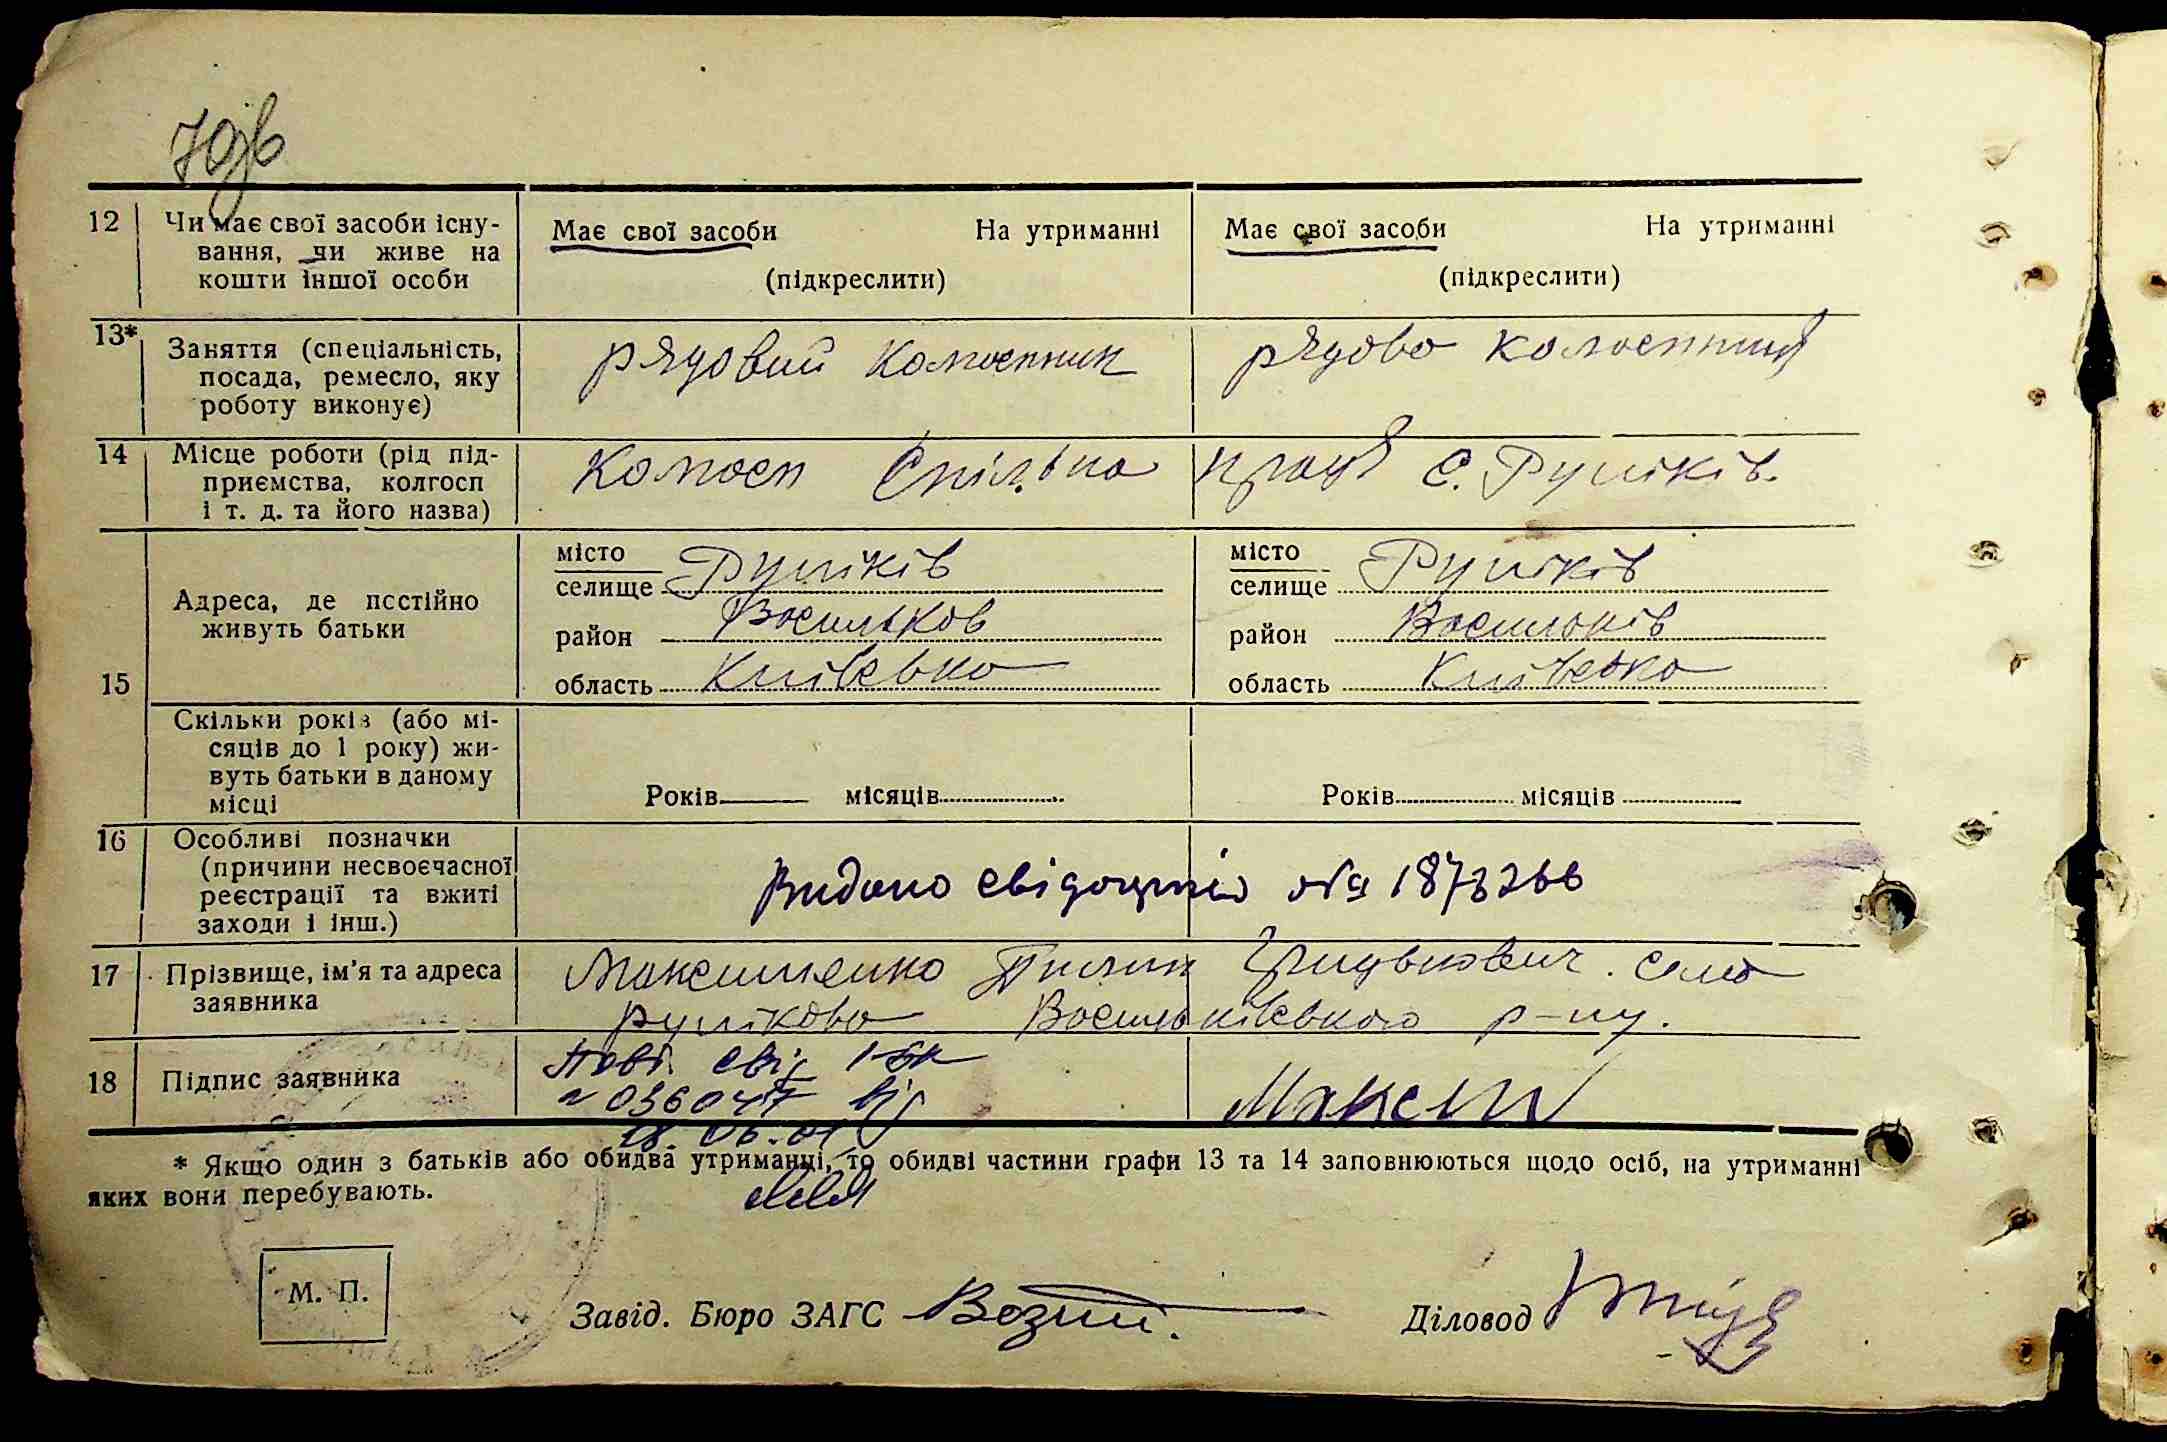 70зв
12 Чи має свої засоби існу-
вання, чи живе на
кошти іншої особи
Має свої засоби На утриманні
(підкреслити)
Має свої засоби На утриманні
(підкреслити)
13* Заняття (спеціальність,
посада, ремесло, яку
роботу виконує)
рядовий колгоспник
рядова колгоспниця
14 Місце роботи (рід під-
приємства, колгосп
і т. д. та його назва)
Колгосп Спільна праця с. Рулików
15
Адреса, де постійно
живуть батьки
місто
селище
район Васильков
область Київська
місто
селище
район Васильків
область Київська
Скільки років (або мі-
сяців до 1 року) жи-
вуть батьки в даному
місці
Років місяців
Років місяців
16 Особливі позначки
(причини несвоєчасної
реєстрації та вжиті
заходи і інш.)
Видано свідоцтво №
17 Прізвище, ім'я та адреса
заявника
Максименко Пилип Грицькович. село
Васильківського р-ну.
18 Підпис заявника
Повт. свід. І-БК
№ 036047 від
18.06.01
Максим
* Якщо один з батьків або обидва утриманці, то обидві частини графи 13 та 14 заповнюються щодо осіб, на утриманні
яких вони перебувають.
М. П.
Завід. Бюро ЗАГС
Діловод